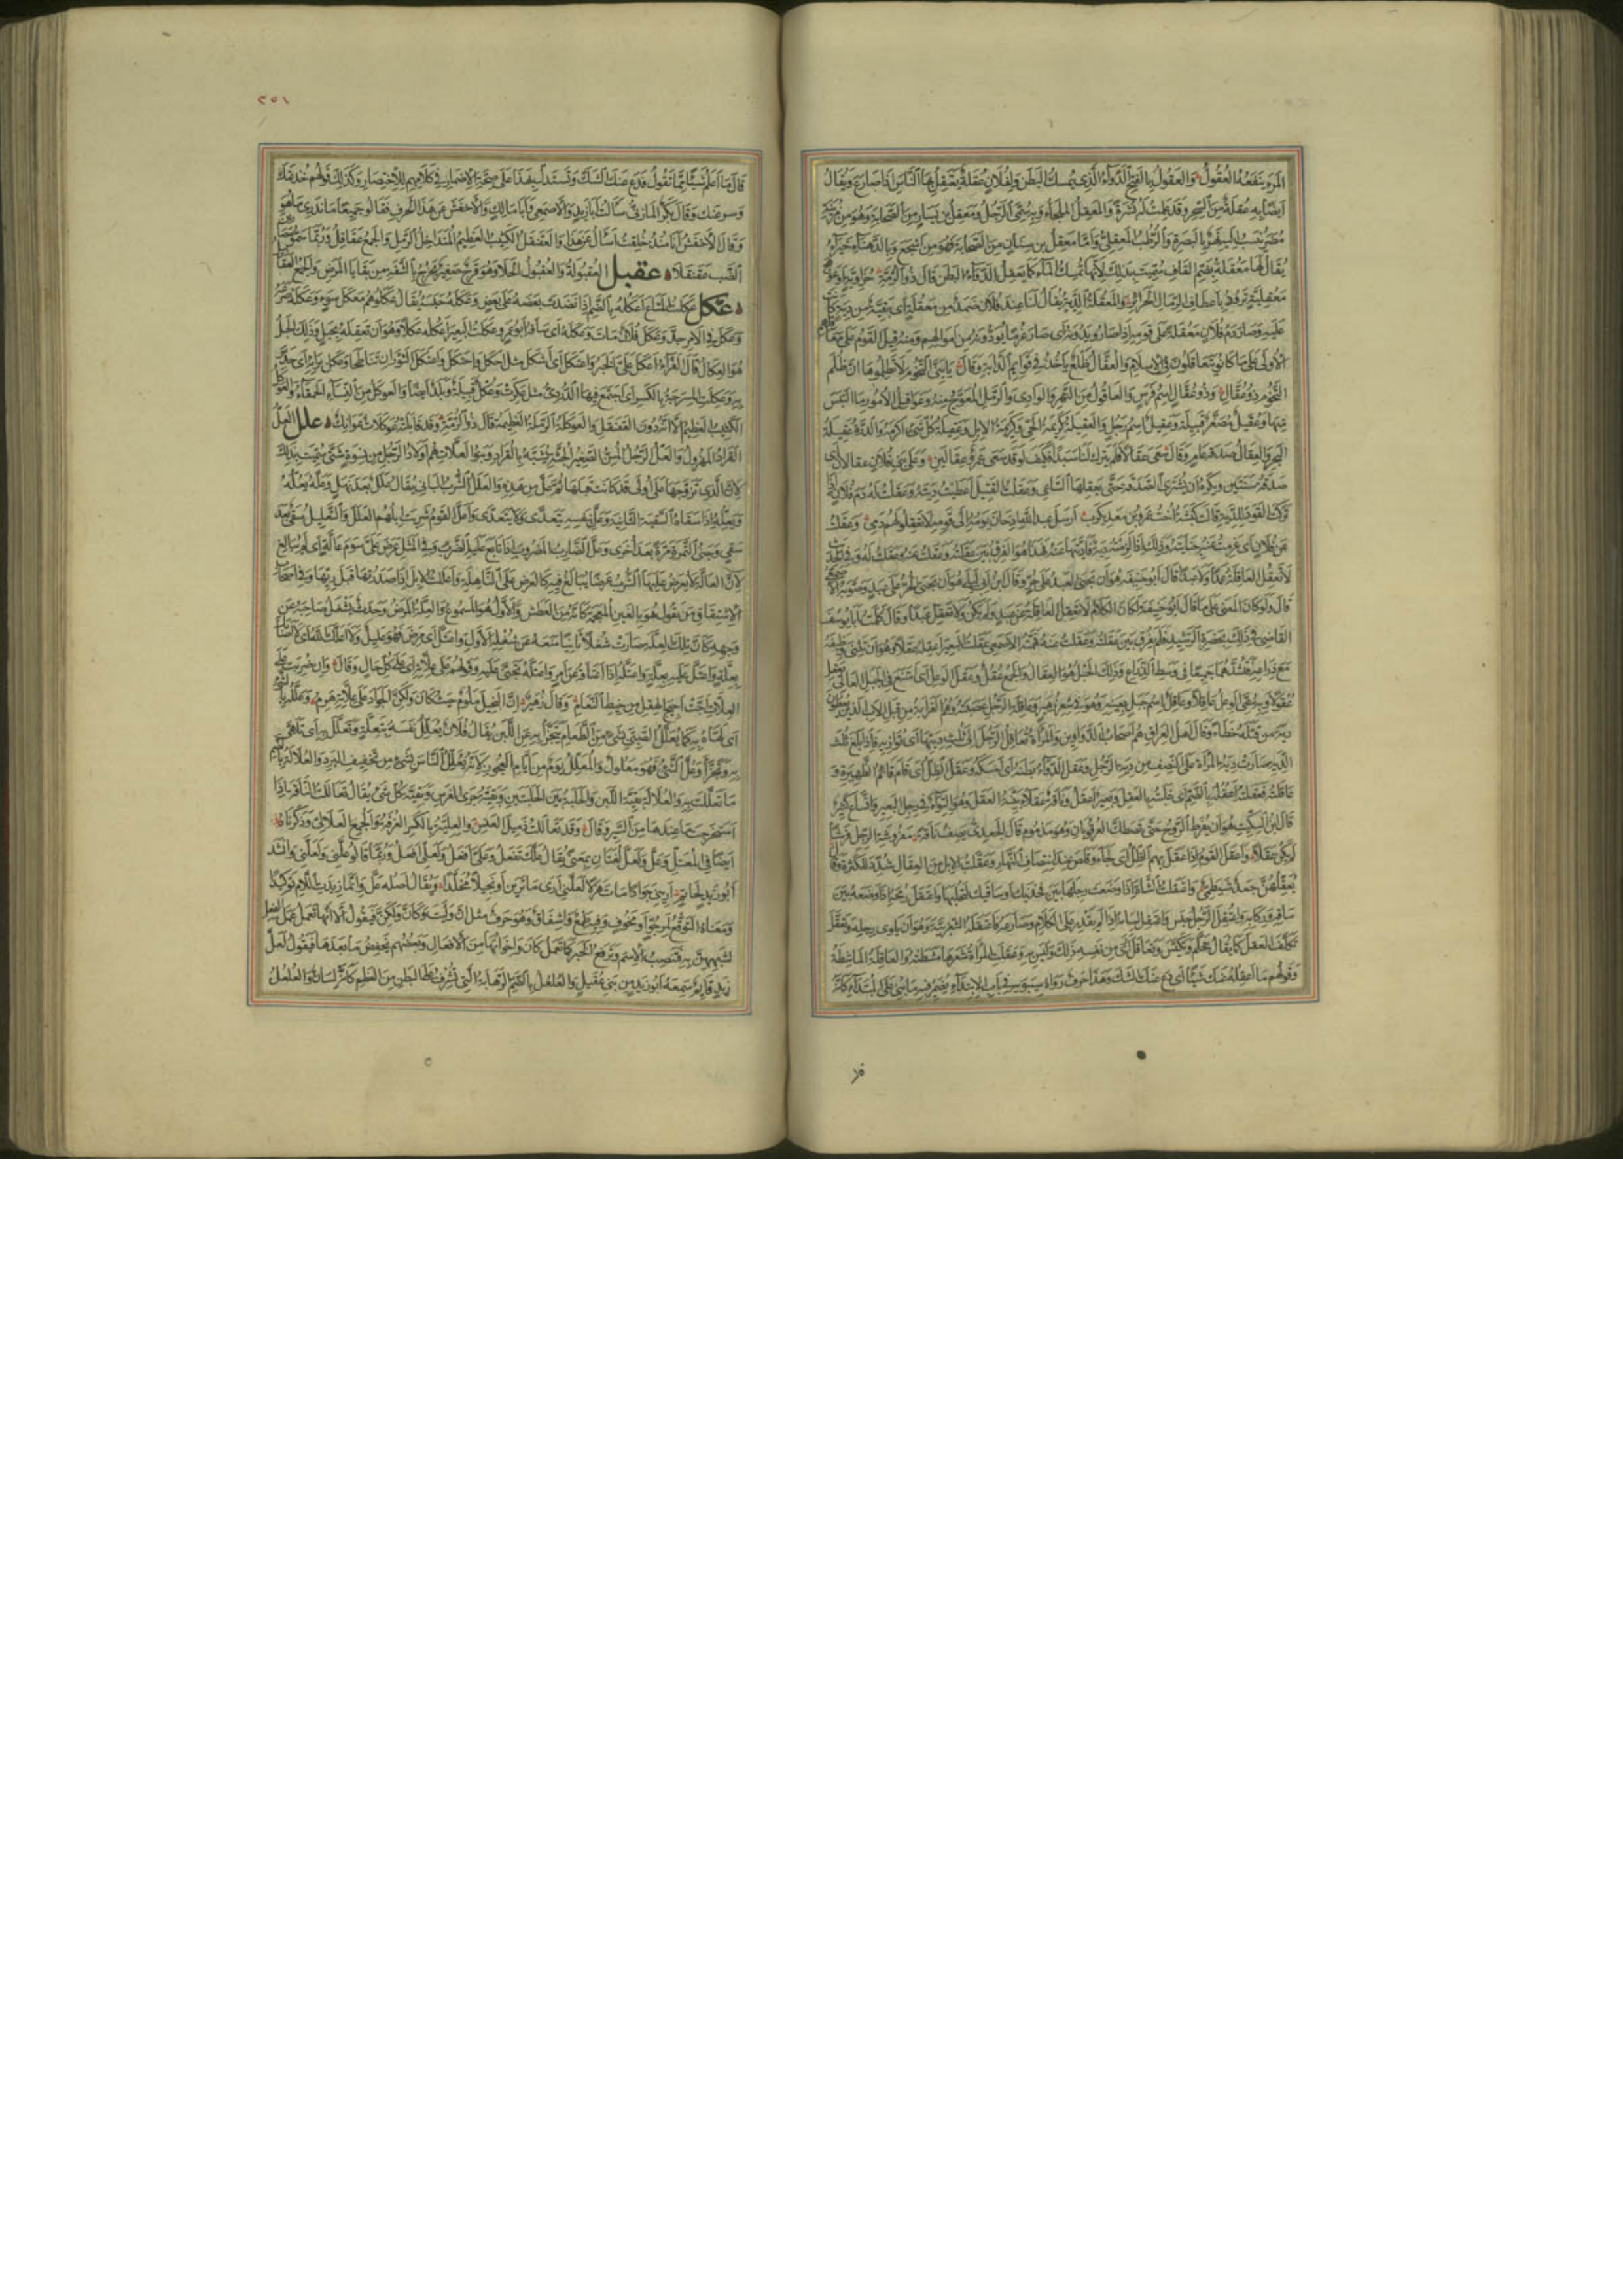 المرء ينفعه العقول والعقول بالفتح الدواء الذي يمسك البطن ولفلان عقلة يعتقل بها الناس اذا صارع ويقال
ايضا به عقلة من السحر وقد عملت له نشرة والمعقل الملجاء وبه سمى الرجل ومعقل بن يسار من الصحابة وهو من مزينة
مضر ينسب اليه نهر بالبصرة والرطب المعقلى واما معقل بن سنان من الصحابة فهو من اشجع وبالدهناء خبراء
يقال لها معقلة بضم القاف سميت بذلك لانها تمسك الماء كما يعقل الدواء البطن قال ذو الرمة حزاوية او عوهج
معقلية ترود باعطاف الرمال الحرائر والمعقلة الدية يقال لنا عند فلان ضمد من معقلة اى بقية من دية كانت
عليه وصار دم فلان معقلة على قومه اذا صاروا يدونه اى صار غرما يؤدونه من اموالهم ومنه قيل القوم على معاقلهم
الاولى على ما كانوا يتعاقلون في الاسلام والعقال ظلع ياخذ في قوائم الدابة وقال يا بنى التخوم لا تظلموها ان ظلم
التخوم ذو عقال وذو عقال اسم فرس والعاقول من النهر والوادى والرمل المعوج منه وعواقيل الامور ما التبس
منها وعقيل مصغر قبيلة وعقيل اسم رجل والعقيلة كريمة الحى وكريمة الابل وعقيلة كل شىء اكرمه والدرة عقيلة
البحر والعقال صدقة عام وقال سعى عقالا فلم يترك لنا سبدا فكيف لو قد سعى عمرو عقالين وعلى بنى فلان عقالان اى
صدقة سنتين ويكره ان تشترى الصدقة حتى يعقلها الساعى وعقلت القتيل اعطيت ديته وعقلت له دم فلان اذا
تركت القود للدية قالت كبشة اخت عمرو بن معديكرب ارسل عبد الله اذ حان يومه الى قومه لا تعقلوا لهم دمى وعقلت
عن فلان اى غرمت عنه جنايته وذلك اذا لزمته دية فاديتها عنه فهذا هو الفرق بين عقلته وعقلت عنه وعقلت له وفي الحديث
لا تعقل العاقلة عمدا ولا عبدا قال ابو حنيفة هو ان يجنى العبد على حر وقال ابن ابى ليلى هو ان يجنى الحر على عبد وصوبه الاصمعي
قال ولو كان المعنى على ما قال ابو حنيفة لكان الكلام لا تعقل العاقلة عن عبد ولم يكن ولا تعقل عبدا وقال كلمت ابا يوسف
القاضى فى ذلك بحضرة الرشيد فلم يفرق بين عقلته وعقلت عنه حتى فهمته الاصمعي عقلت البعير اعقله عقلا وهو ان تثنى وظيفه
مع ذراعه فتشدهما جميعا فى وسط الذراع وذلك الحبل هو العقال والجمع عقل وعقل الوعل اى امتنع في الجبل العالى يعقل
عقولا وبه سمى الوعل عاقلا وعاقل اسم جبل بعينه وهو في شعر زهير وعاقلة الرجل عصبته وهم القرابة من قبل الاب الذين يعطون
دية من قتله خطأ وقال اهل العراق هم اصحاب الدواوين والمرأة تعاقل الرجل الى ثلث ديتها اى توازيه فاذا بلغ ثلث
الدية صارت دية المرأة على النصف من دية الرجل وعقل الدواء بطنه اى امسكه وعقل الظل اى قام قائم الظهيرة و
عاقلته فعقلته اعقله بالضم اى غلبته بالعقل وبعير اعقل وناقة عقلاء بينة العقل وهو التواء في رجل البعير واتساع كثير
قال ابن السكيت هو ان يفرط الروح حتى يصطك العرقوبان وهو مذموم قال الجعدى يصف ناقة مفروشة الرجل فرشا
لم يكن عقلا واعقل القوم اذا عقل بهم الظل اى لجأ وقلص عند انتصاف النهار وعقلت الابل من العقال شدد للكثرة وقال
يعقلهن جعد شيظمى واعتقلت الشاة اذا وضعت رجلها بين فخذيك او ساقيك لتحلبها واعتقل رمحه اذا وضعه بين
ساقه وركابه واعتقل الرجل حبس واعتقل لسانه اذا لم يقدر على الكلام وصارعه فاعتقله الشغزبية وهو ان يلوى رجله وتعقل
تكلف العقل كما يقال تحلم وتكيس وتعاقل ارى من نفسه ذلك وليس به وعقلت المرأة شعرها مشطته والعاقلة الماشطة
وقولهم ما اعقله عنك شيئا اى دع عنك الشك وهذا حرف رواه سيبويه في باب الابتداء يضمر فيه ما بنى على الابتداء كأنه
٢٥١
قال ما اعلم شيئا مما تقول فدع عنك الشك وتستدل بهذا على صحة الاضمار في كلامهم للاختصار وكذلك قولهم خذ عنك
وسر عنك وقال بكر المازنى سألت ابا زيد والاصمعى وابا مالك والاخفش عن هذا الحرف فقالوا جميعا ما ندرى ما هو
وقال الاخفش انا منذ خلقت اسأل عن هذا والعقنقل الكثيب العظيم المتداخل الرمل والجمع عقاقل وربما سموا مصارين
الضب عقنقلا عقبل العقبولة والعقبول الحلأ وهو قروح صغار تخرج بالشفة من بقايا المرض والجمع العقابيل
عكل عكلت المتاع اعكله بالضم اذا نضدت بعضه على بعض وعكله حبسه يقال عكلوهم معكل سوء وعكله صرعه
وعكل في الامر جد وعكل فلان مات وعكله اى ساقه ابو عمرو عكلت البعير اعكله عكلا وهو ان تعقله بحبل وذلك الحبل
هو العكال قال الفراء اعكل على الخبر واعتكل اى اشكل مثل احكل واحتكل واعتكل الثوران تناطحا وعكل برايه اى حدس
به وعكلت المسرجة بالكسر اى اجتمع فيها الدردى مثل عكرت وعكل قبيلة وبلد ايضا والعوكل من النساء الحمقاء والعوكل
الكثيب العظيم الا انه دون العقنقل والعوكلة الرملة العظيمة قال ذو الرمة وقد قابلته عوكلات عوانك علل العل
القراد المهزول والعل الرجل المسن الصغير الجثة يشبه بالقراد وبنو العلات هم اولاد الرجل من نسوة شتى سميت بذلك
لان الذى تزوجها على اولى قد كانت قبلها ثم عل من هذه والعلل الشرب الثانى يقال علل بعد نهل وعله يعله
ويعله اذا سقاه السقية الثانية وعل بنفسه يتعدى ولا يتعدى واعل القوم شربت ابلهم العلل والتعليل سقى بعد
سقى وجنى الثمرة مرة بعد اخرى وعل الضارب المضروب اذا تابع عليه الضرب وفي المثل عرض على سوم عالة اى لم يبالغ
لان العالة لا يعرض عليها الشرب عرضا يبالغ فيه كالعرض على الناهلة واعللت الابل اذا اصدرتها قبل ريها وفي اصحاب
الاشتقاق من يقول هو بالغين المعجمة كانه من العطش والاول هو المسموع والعلة المرض وحدث يشغل صاحبه عن
وجهه كان تلك العلة صارت شغلا ثانيا منعه عن شغله الاول واعتل اى مرض فهو عليل ولا اعلك الله اى لا اصابك
بعلة واعتل عليه بعلة واعتله اذا اعتاقه عن امر واعتله تجنى عليه وقولهم على علاته اى على كل حال وقال وان ضربت على
العلات اجت اجيج الهقل من خيط النعام وقال زهير ان البخيل ملوم حيث كان ولكن الجواد على علاته هرم وعلله بالشىء
اى لهاه به كما يعلل الصبى بشىء من الطعام يتجزأ به عن اللبن يقال فلان يعلل نفسه بتعلة وتعلل به اى تلهى
به وتجزأ وعل الشىء فهو معلول والمعلل يوم من ايام العجوز لانه يعلل الناس بشىء من تخفيف البرد والعلالة بالضم
ما تعللت به والعلالة بقية اللبن والحلبة بين الحلبتين وبقية جرى الفرس وبقية كل شىء يقال تعاللت الناقة اذا
استخرجت ما عندها من السير وقال وقد تعاللت ذميل العنس والعلية بالكسر الغرفة والجمع العلالى وذكرناه
ايضا في المعتل وعل ولعل لغتان بمعنى يقال علك تفعل وعلى افعل ولعلى افعل وربما قالوا علنى ولعلنى وانشد
ابو زيد لحاتم ارينى جوادا مات هزلا لعلنى ارى ما ترين او بخيلا مخلدا ويقال اصله عل وانما زيدت اللام توكيدا
ومعناه التوقع لمرجو او مخوف وفيه طمع واشفاق وهو حرف مثل ان وليت وكان ولكن فيقول الا انها تعمل عمل الفعل
لشبههن به فتنصب الاسم وترفع الخبر كما تعمل كان واخواتها من الافعال وبعضهم يخفض ما بعدها فيقول لعل
زيد قائم سمعه ابو زيد من بنى عقيل والعلعل بالضم الرهابة التى تشرف على البطن من العظم كانه لسان والعلعل